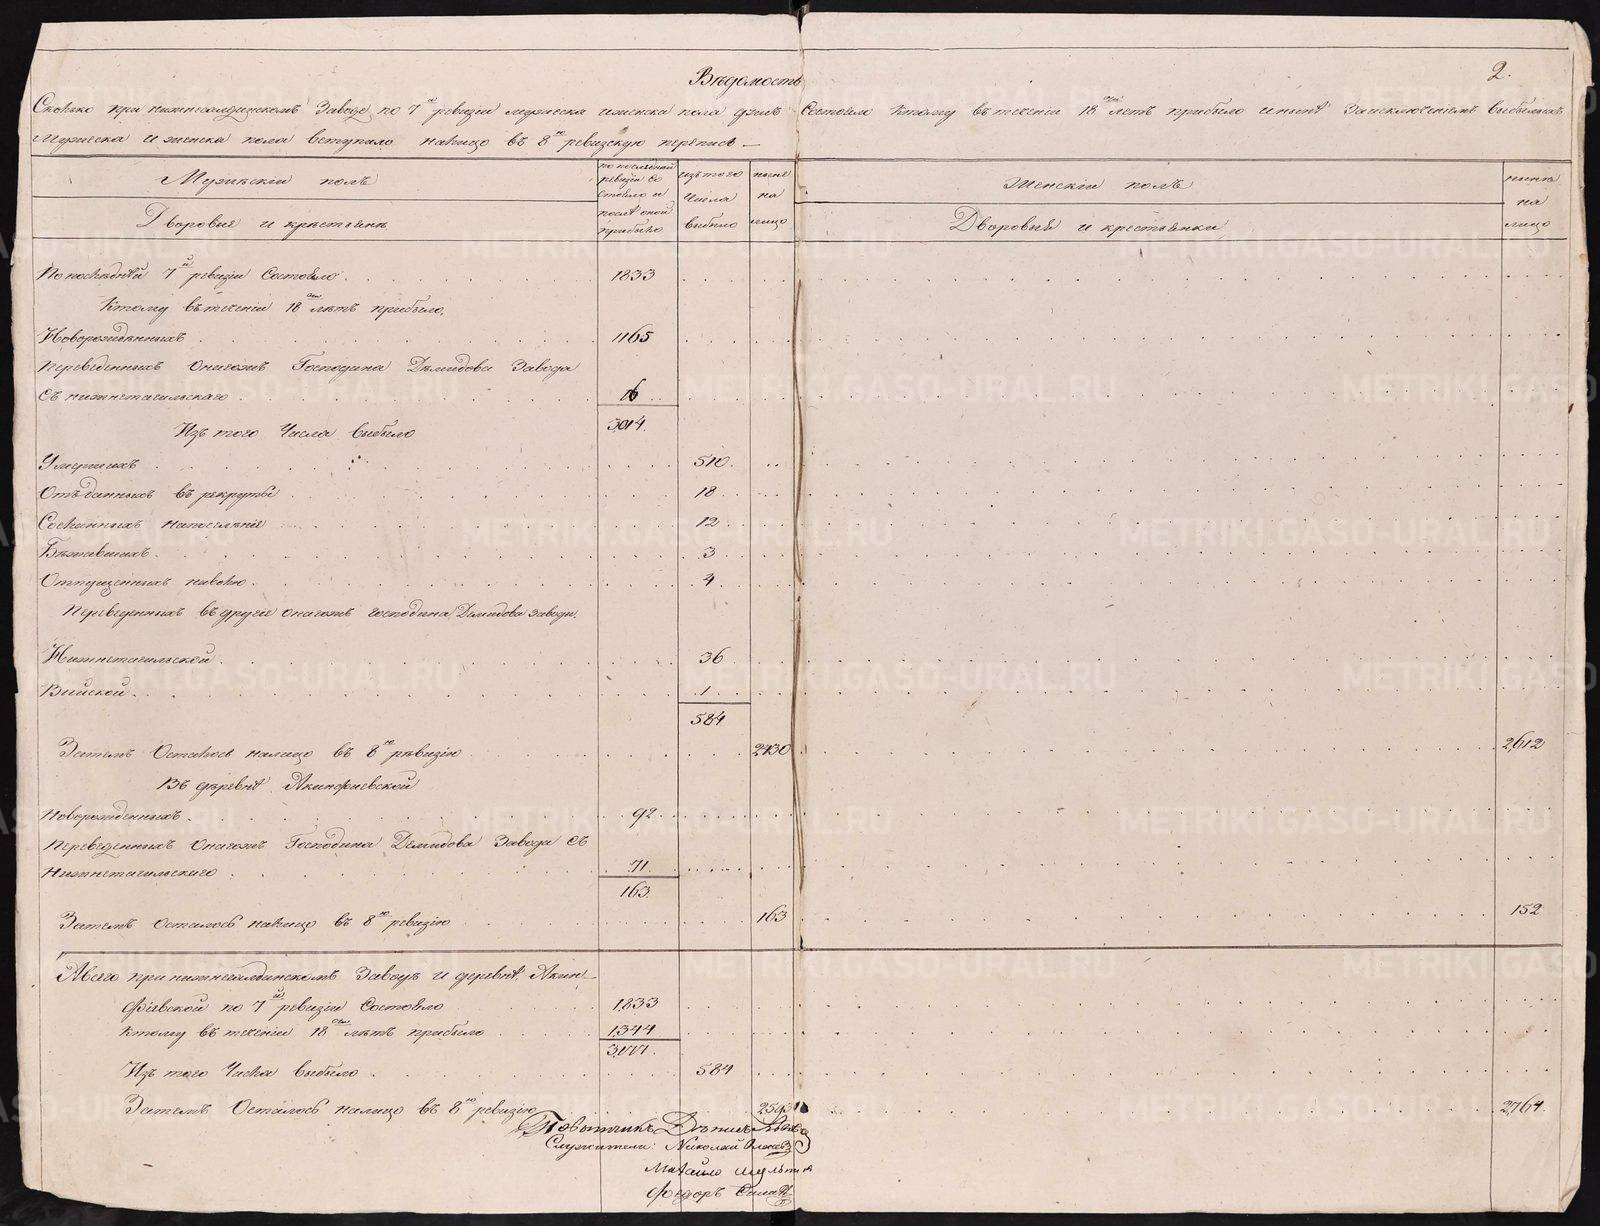 2.
Вѣдомость
Сколько при нижнесалдинскомъ Заводе по 7й ревизіи мужеска и женска пола душъ Состояло Ктому въ теченіи 18ти летъ прибыло и ныне За исключеніемъ выбылыхъ
Мужеска и женска пола вступило налицо въ 8ю ревизскую перепись —
Мужескій полъ
по последней ревизіи Состояло и после оной прибыло
изъ того Числа выбыло
ныне на лицо
Женскій полъ
ныне на лицо
Дворовые и крестьяне
Дворовыя и крестьянки
По последней 7й ревизіи Состояло 1833
Ктому въ теченіи 18ти летъ прибыло,
Новорожденныхъ 1165
Переведенныхъ Онагожъ Господина Демидова Завода
Съ нижнетагильскаго 16
Изъ того Числа выбыло 3014.
Умершихъ 510.
Отъданныхъ въ рекруты 18
Сосланныхъ напоселѣніе 12
Бежавшихъ 3
Отпущенныхъ наволю 4
Переведенныхъ въ другіе онагожъ господина Демидова заводы.
Нижнетагильской 36
Выйской 1
584
Затемъ Осталось налицо въ 8ю ревизію 2430 2612
Въ деревне Акинфиевской
Новорожденныхъ 92
Переведенныхъ Онагожъ Господина Демидова Завода Съ
Нижнетагильскаго 71
163
Затемъ осталось налицо въ 8ю ревизію 163 152
А всего при нижнесалдинскомъ Заводе и деревне Акин-
фіевской по 7й ревизіи Состояло 1833
Ктому въ теченіи 18ти летъ прибыло 1344
3177.
Изъ того Числа выбыло 584
Затемъ Осталось налицо въ 8ю ревизію 2593 2764
Служители: Николай
Михайло
Федоръ
METRIKI.GASO-URAL.RU